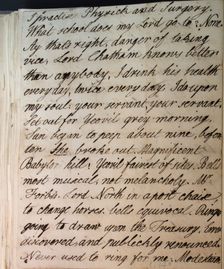 I practice Physick and Surgery.
What school does my Lord go to? None
My that's right, danger of taking
vice, Lord Chatham knows better
than anybody, I drink his health
everyday, twice every day, I do upon
my soul your servant, your servant,
set out for Yeovil grey morning,
Sun began to peep about nine, before
ten She broke out. Magnificent
Babylon hill, Yeovil fairest of sites. Bells
most musical, not melancholy. Mr.
Forbes. Lord North in a post chaise,
to change horses, bells equivocal.
going to draw upon the Treasury,
discovered, and publickly renounced.
Never used to ring for me,